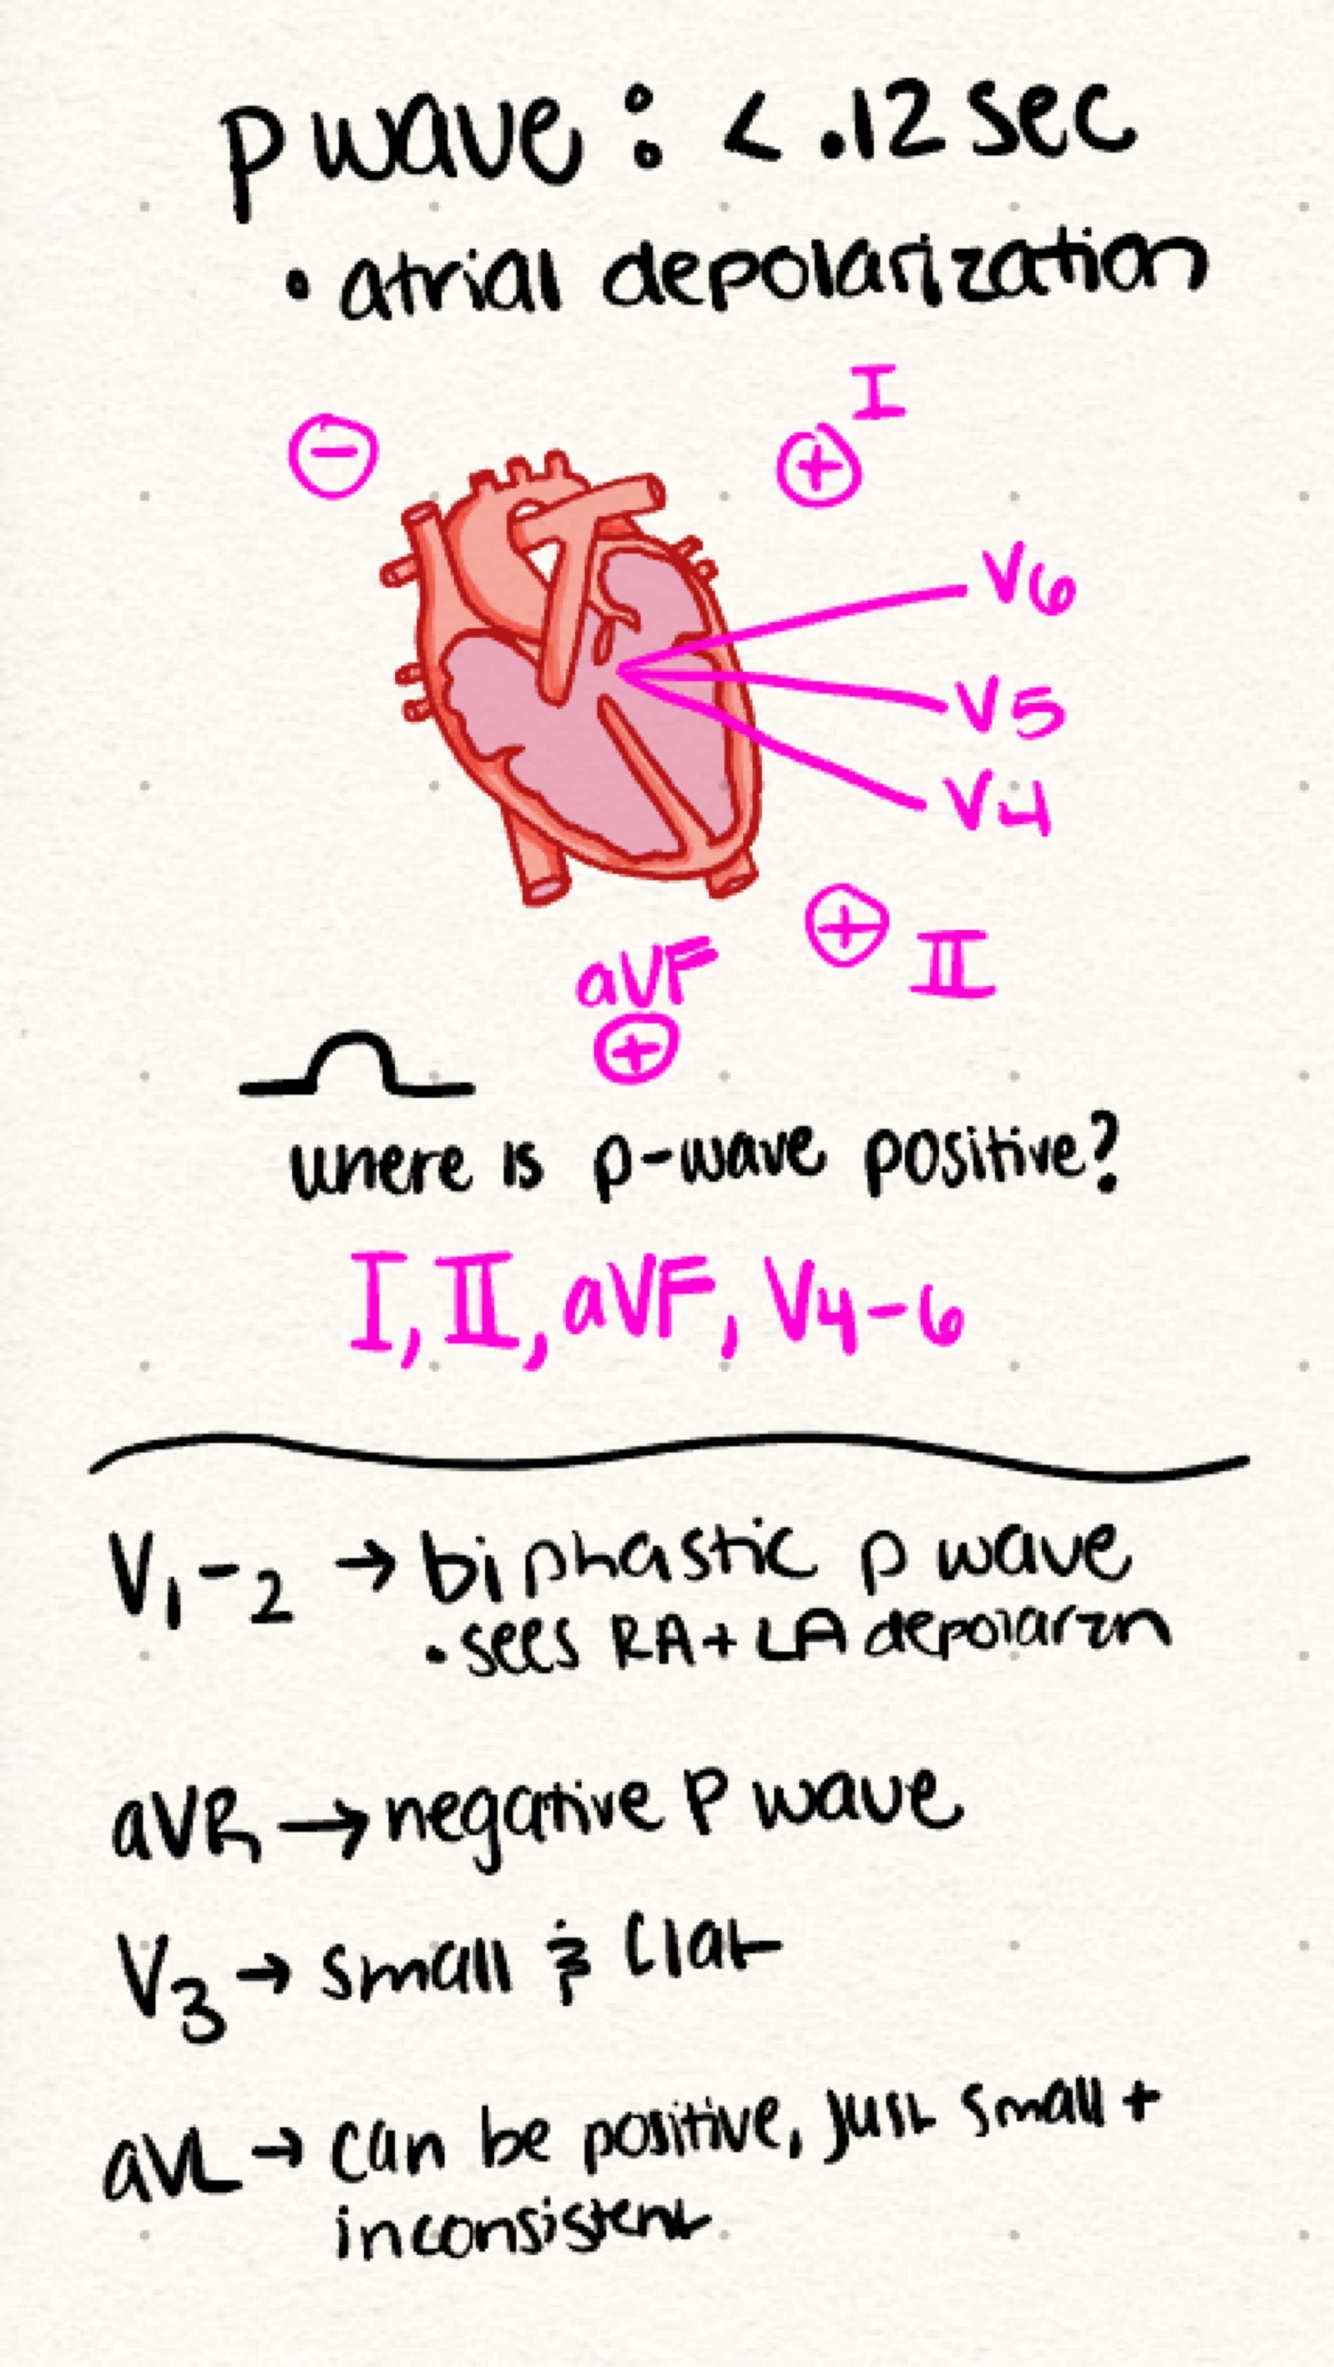 p wave : < .12 sec
• atrial depolarization
I
⊖ ⊕
V6
V5
V4
⊕ II
aVF
⊕
where is p-wave positive?
I, II, aVF, V4-6
V1-2 → biphastic p wave
• sees RA + LA depolarzn
aVR → negative P wave
V3 → small & flat
aVL → can be positive, just small +
inconsistent